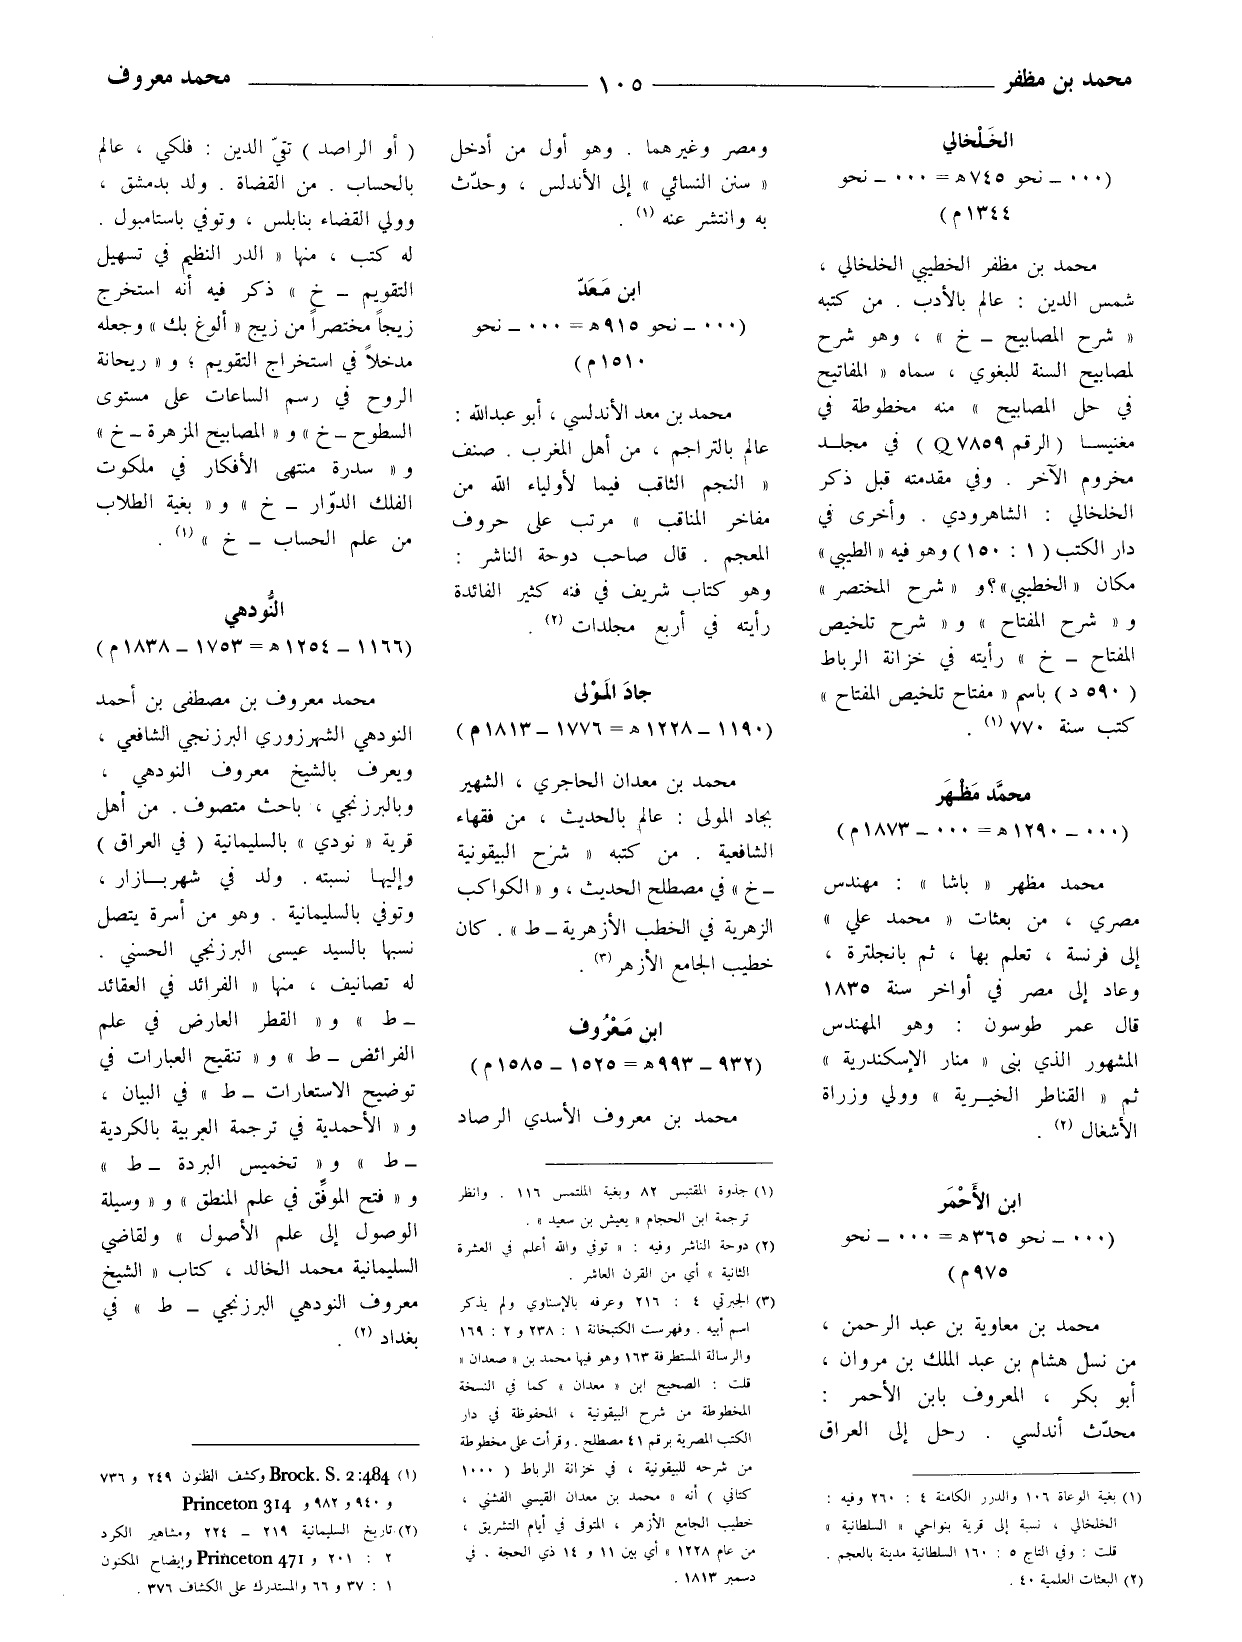 محمد بن مظفر ١٠٥ محمد معروف
الخَلْخالي
(٠٠٠ ــ نحو ٧٤٥ هـ = ٠٠٠ ــ نحو
١٣٤٤ م)
محمد بن مظفر الخطيبي الخلخالي ،
شمس الدين : عالم بالأدب . من كتبه
« شرح المصابيح ــ خ » ، وهو شرح
لمصابيح السنة للبغوي ، سماه « المفاتيح
في حل المصابيح » منه مخطوطة في
مغنيسا ( الرقم ٧٨٥٩ Q ) في مجلد
مخروم الآخر . وفي مقدمته قبل ذكر
الخلخالي : الشاهرودي . وأخرى في
دار الكتب ( ١ : ١٥٠ ) وهو فيه « الطيبي »
مكان « الخطيبي »؟ و « شرح المختصر »
و « شرح المفتاح » و « شرح تلخيص
المفتاح ــ خ » رأيته في خزانة الرباط
( ٥٩٠ د ) باسم « مفتاح تلخيص المفتاح »
كتب سنة ٧٧٠ (١) .
محمَّد مَظْهَر
(٠٠٠ ــ ١٢٩٠ هـ = ٠٠٠ ــ ١٨٧٣ م)
محمد مظهر « باشا » : مهندس
مصري ، من بعثات « محمد علي »
إلى فرنسة ، تعلم بها ، ثم بانجلترة ،
وعاد إلى مصر في أواخر سنة ١٨٣٥
قال عمر طوسون : وهو المهندس
المشهور الذي بنى « منار الإسكندرية »
ثم « القناطر الخيرية » وولي وزراة
الأشغال (٢) .
ابن الأَحْمَر
(٠٠٠ ــ نحو ٣٦٥ هـ = ٠٠٠ ــ نحو
٩٧٥ م)
محمد بن معاوية بن عبد الرحمن ،
من نسل هشام بن عبد الملك بن مروان ،
أبو بكر ، المعروف بابن الأحمر :
محدّث أندلسي . رحل إلى العراق
(١) بغية الوعاة ١٠٦ والدرر الكامنة ٤ : ٢٦٠ وفيه :
الخلخالي ، نسبة إلى قرية بنواحي « السلطانية »
قلت : وفي التاج ٥ : ١٦٠ السلطانية مدينة بالعجم .
(٢) البعثات العلمية ٤٠ .
ومصر وغيرهما . وهو أول من أدخل
« سنن النسائي » إلى الأندلس ، وحدّث
به وانتشر عنه (١) .
ابن مَعَدّ
(٠٠٠ ــ نحو ٩١٥ هـ = ٠٠٠ ــ نحو
١٥١٠ م)
محمد بن معد الأندلسي ، أبو عبدالله :
عالم بالتراجم ، من أهل المغرب . صنف
« النجم الثاقب فيما لأولياء الله من
مفاخر المناقب » مرتب على حروف
المعجم . قال صاحب دوحة الناشر :
وهو كتاب شريف في فنه كثير الفائدة
رأيته في أربع مجلدات (٢) .
جادَ المَوْلى
(١١٩٠ ــ ١٢٢٨ هـ = ١٧٧٦ ــ ١٨١٣ م)
محمد بن معدان الحاجري ، الشهير
بجاد المولى : عالم بالحديث ، من فقهاء
الشافعية . من كتبه « شرح البيقونية
ــ خ » في مصطلح الحديث ، و « الكواكب
الزهرية في الخطب الأزهرية ــ ط » . كان
خطيب الجامع الأزهر (٣) .
ابن مَعْرُوف
(٩٣٢ ــ ٩٩٣ هـ = ١٥٢٥ ــ ١٥٨٥ م)
محمد بن معروف الأسدي الرصاد
(١) جذوة المقتبس ٨٢ وبغية الملتمس ١١٦ . وانظر
ترجمة ابن الحجام « يعيش بن سعيد » .
(٢) دوحة الناشر وفيه : « توفي والله أعلم في العشرة
الثانية » أي من القرن العاشر .
(٣) الجبرتي ٤ : ٢١٦ وعرفه بالإسناوي ولم يذكر
اسم أبيه . وفهرست الكتبخانة ١ : ٢٣٨ و ٢ : ١٦٩
والرسالة المستطرفة ١٦٣ وهو فيها محمد بن « صعدان »
قلت : الصحيح ابن « معدان » كما في النسخة
المخطوطة من شرح البيقونية ، المحفوظة في دار
الكتب المصرية برقم ٤١ مصطلح . وقرأت على مخطوطة
من شرحه للبيقونية ، في خزانة الرباط ( ١٠٠٠
كتاني ) أنه « محمد بن معدان القيسي الفشني ،
خطيب الجامع الأزهر ، المتوفى في أيام التشريق ،
من عام ١٢٢٨ » أي بين ١١ و ١٤ ذي الحجة . في
دسمبر ١٨١٣ .
( أو الراصد ) تقيّ الدين : فلكي ، عالم
بالحساب . من القضاة . ولد بدمشق ،
وولي القضاء بنابلس ، وتوفي باستامبول .
له كتب ، منها « الدر النظيم في تسهيل
التقويم ــ خ » ذكر فيه أنه استخرج
زيجاً مختصراً من زيج « ألوغ بك » وجعله
مدخلاً في استخراج التقويم ؛ و « ريحانة
الروح في رسم الساعات على مستوى
السطوح ــ خ » و « المصابيح المزهرة ــ خ »
و « سدرة منتهى الأفكار في ملكوت
الفلك الدوّار ــ خ » و « بغية الطلاب
من علم الحساب ــ خ » (١) .
النُّودهي
(١١٦٦ ــ ١٢٥٤ هـ = ١٧٥٣ ــ ١٨٣٨ م)
محمد معروف بن مصطفى بن أحمد
النودهي الشهرزوري البرزنجي الشافعي ،
ويعرف بالشيخ معروف النودهي ،
وبالبرزنجي ، باحث متصوف . من أهل
قرية « نودي » بالسليمانية ( في العراق )
وإليها نسبته . ولد في شهربازار ،
وتوفي بالسليمانية . وهو من أسرة يتصل
نسبها بالسيد عيسى البرزنجي الحسني .
له تصانيف ، منها « الفرائد في العقائد
ــ ط » و « القطر العارض في علم
الفرائض ــ ط » و « تنقيح العبارات في
توضيح الاستعارات ــ ط » في البيان ،
و « الأحمدية في ترجمة العربية بالكردية
ــ ط » و « تخميس البردة ــ ط »
و « فتح الموفِّق في علم المنطق » و « وسيلة
الوصول إلى علم الأصول » ولقاضي
السليمانية محمد الخالد ، كتاب « الشيخ
معروف النودهي البرزنجي ــ ط » في
بغداد (٢) .
(١) Brock. S. 2:484 وكشف الظنون ٢٤٩ و ٧٣٦
و ٩٤٠ و ٩٨٢ و Princeton 314
(٢) تاريخ السليمانية ٢١٩ ــ ٢٢٤ ومشاهير الكرد
٢ : ٢٠١ و Princeton 471 وإيضاح المكنون
١ : ٣٧ و ٦٦ والمستدرك على الكشاف ٣٧٦ .